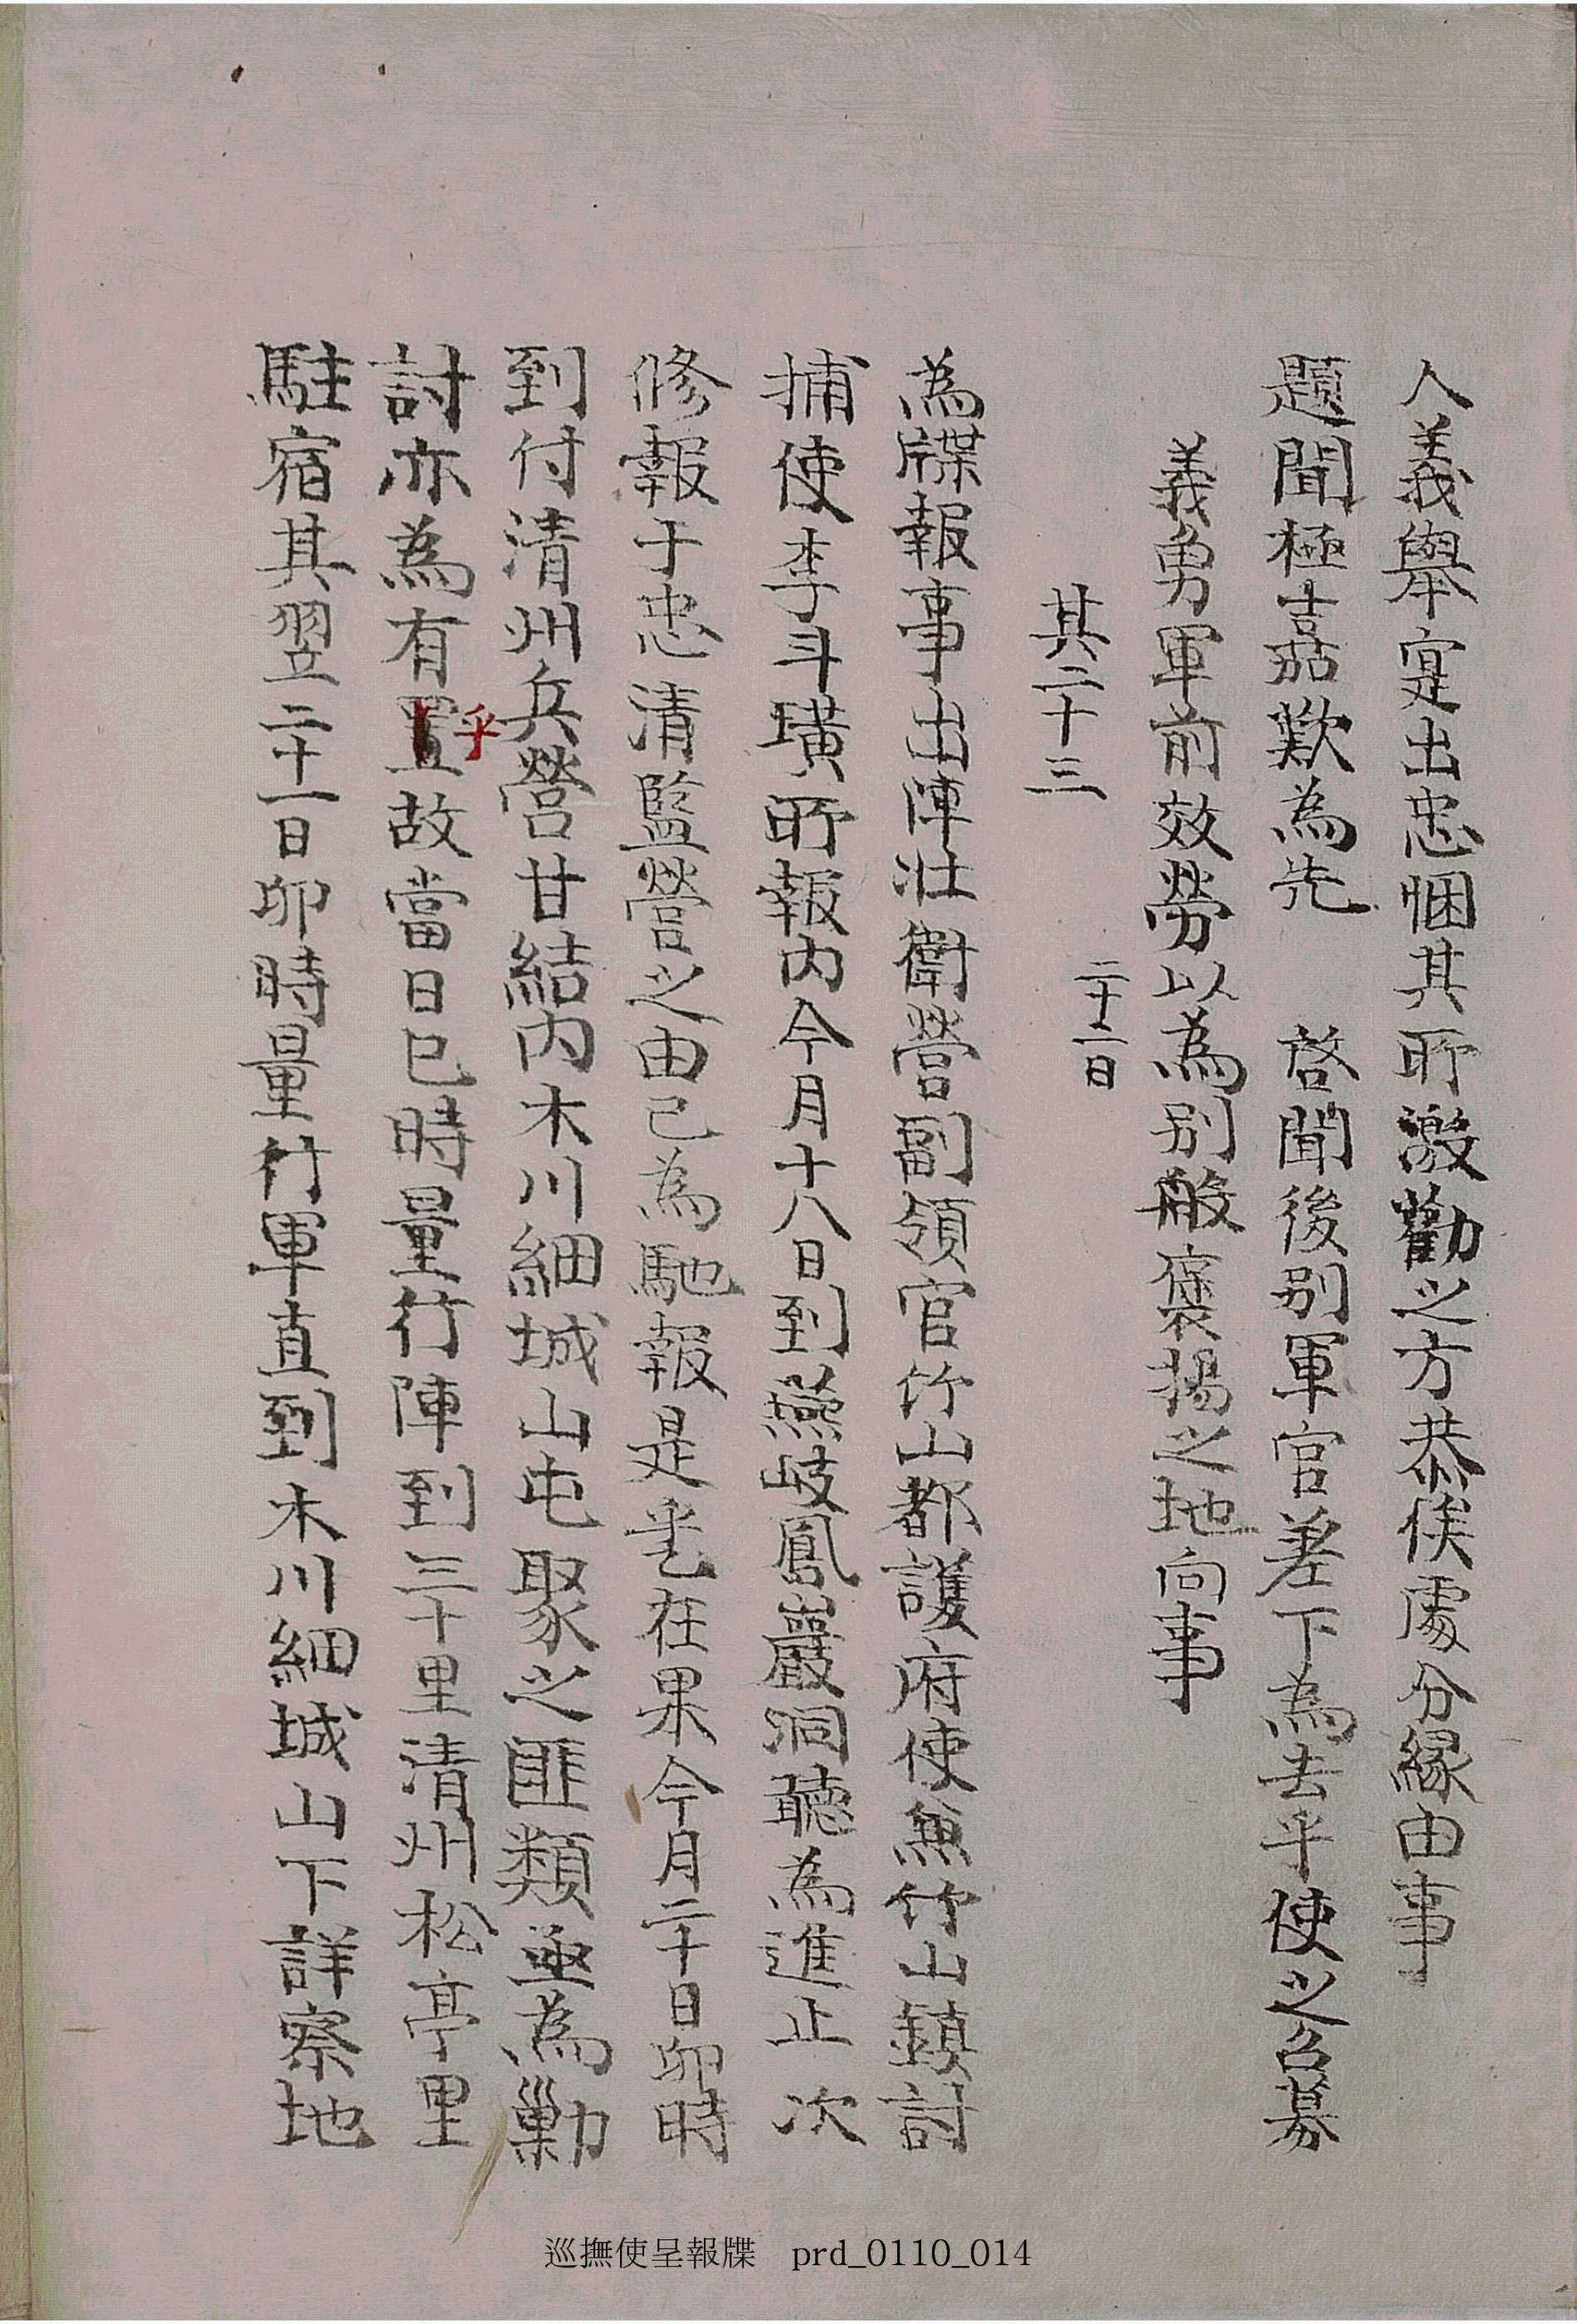 人義舉寔出忠悃其所激勸之方恭俟處分緣由事
題聞極嘉歎為先　啓聞後別軍官差下為去乎使之召募
義勇軍前效勞以為別般褒揚之地向事
其二十三　二十二日
為牒報事出陣壯衛營副領官竹山都護府使兼竹山鎮討
捕使李斗璜所報內今月十八日到燕岐鳳巖洞聽為進止次
修報于忠清監營之由已為馳報是乎在果今月二十日卯時
到付清州兵營甘結內木川細城山屯聚之匪類亟為勦
討亦為有置乎故當日巳時量行陣到三十里清州松亭里
駐宿其翌二十一日卯時量行軍直到木川細城山下詳察地
巡撫使呈報牒　prd_0110_014